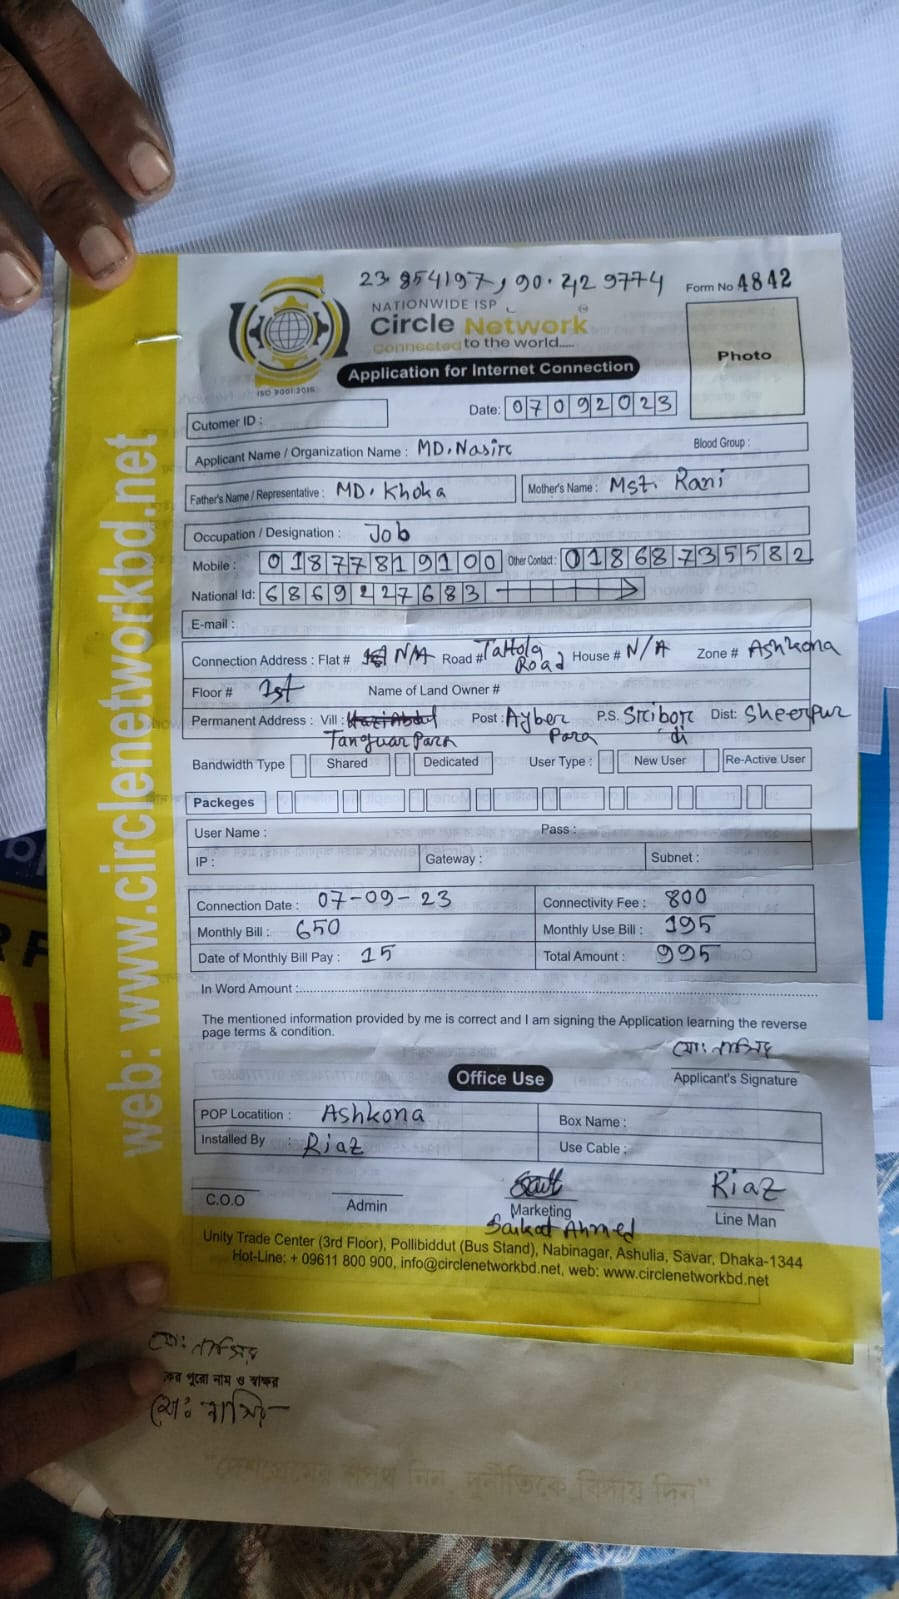 23.854197, 90.429774
Form No 4842
NATIONWIDE ISP
Circle Network
Connected to the world.....
ISO 9001:2015
Application for Internet Connection
Photo
Cutomer ID :
Date: 07092023
Applicant Name / Organization Name : MD. Nasir Blood Group :
Father's Name / Representative : MD. Khoka Mother's Name : Mst. Rani
Occupation / Designation : Job
Mobile : 01877819100 Other Contact : 01868735582
National Id: 6869227683
E-mail :
Connection Address : Flat # N/A Road # Road House # N/A Zone # Ashkona
Floor # 1st Name of Land Owner #
Permanent Address : Vill : Tanguar Para Post : Ayber Para P.S. Sribordi Dist: Sheerpur
Bandwidth Type Shared Dedicated User Type : New User Re-Active User
Packeges
User Name : Pass :
IP : Gateway : Subnet :
Connection Date : 07-09-23 Connectivity Fee : 800
Monthly Bill : 650 Monthly Use Bill : 195
Date of Monthly Bill Pay : 15 Total Amount : 995
In Word Amount :
The mentioned information provided by me is correct and I am signing the Application learning the reverse
page terms & condition.
মোঃ নাসির
Applicant's Signature
Office Use
POP Locatition : Ashkona Box Name :
Installed By : Riaz Use Cable :
Riaz
C.O.O Admin Marketing Line Man
Saikat Ahmed
Unity Trade Center (3rd Floor), Pollibiddut (Bus Stand), Nabinagar, Ashulia, Savar, Dhaka-1344
Hot-Line: + 09611 800 900, info@circlenetworkbd.net, web: www.circlenetworkbd.net
web: www.circlenetworkbd.net
মোঃ নাসির
পুরো নাম ও স্বাক্ষর
মোঃ নাসির
"দেশপ্রেমের শপথ নিন, দুর্নীতিকে বিদায় দিন"